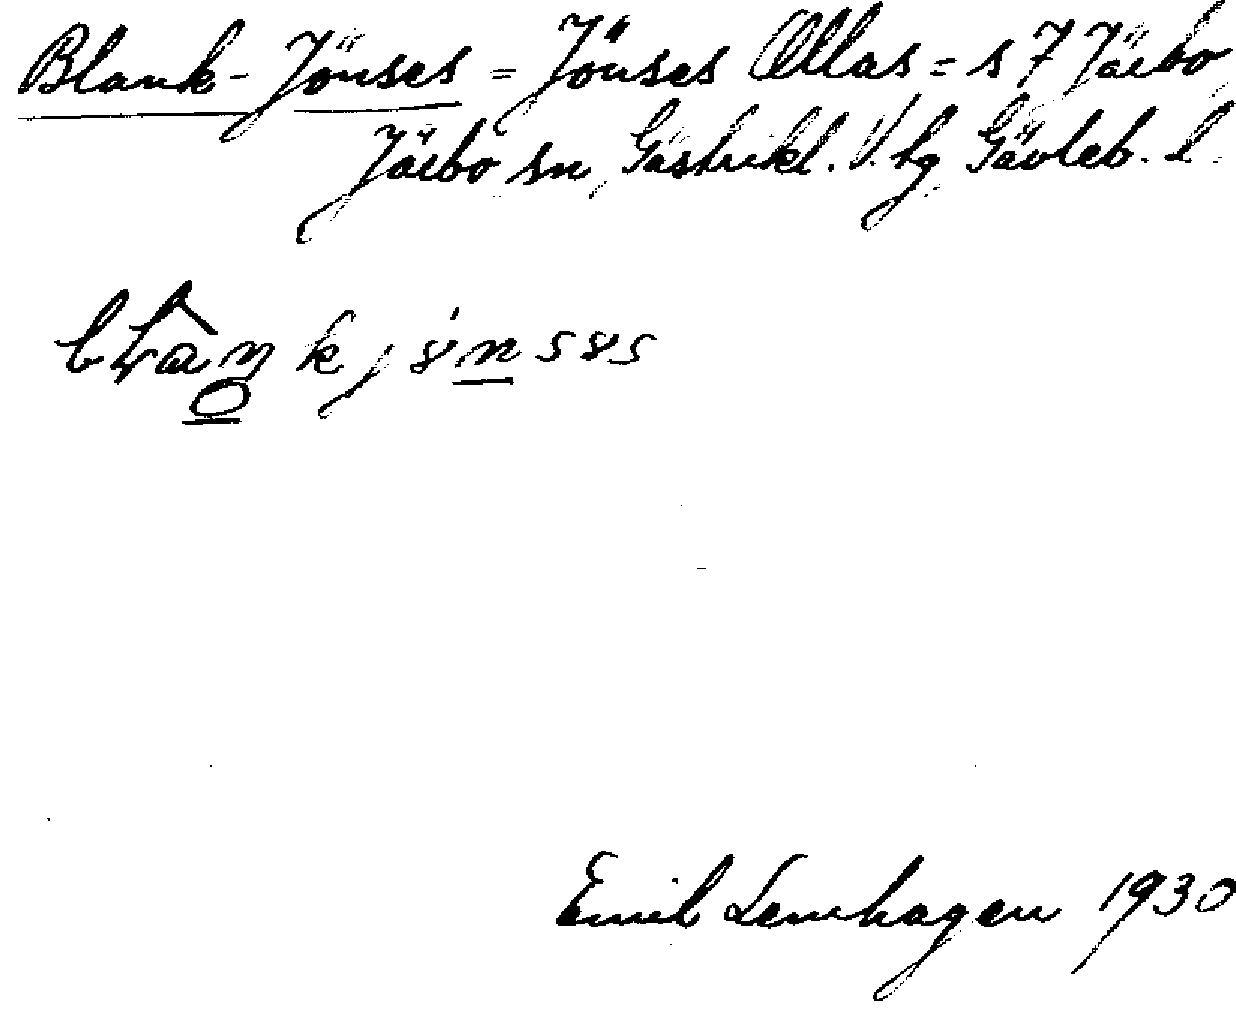 Blank-Jönses = Jönses Ollas = s 7 Järbo
Järbo sn, Gästrikl. V. hg Gävleb. L.
Emil Lenhagen 1930